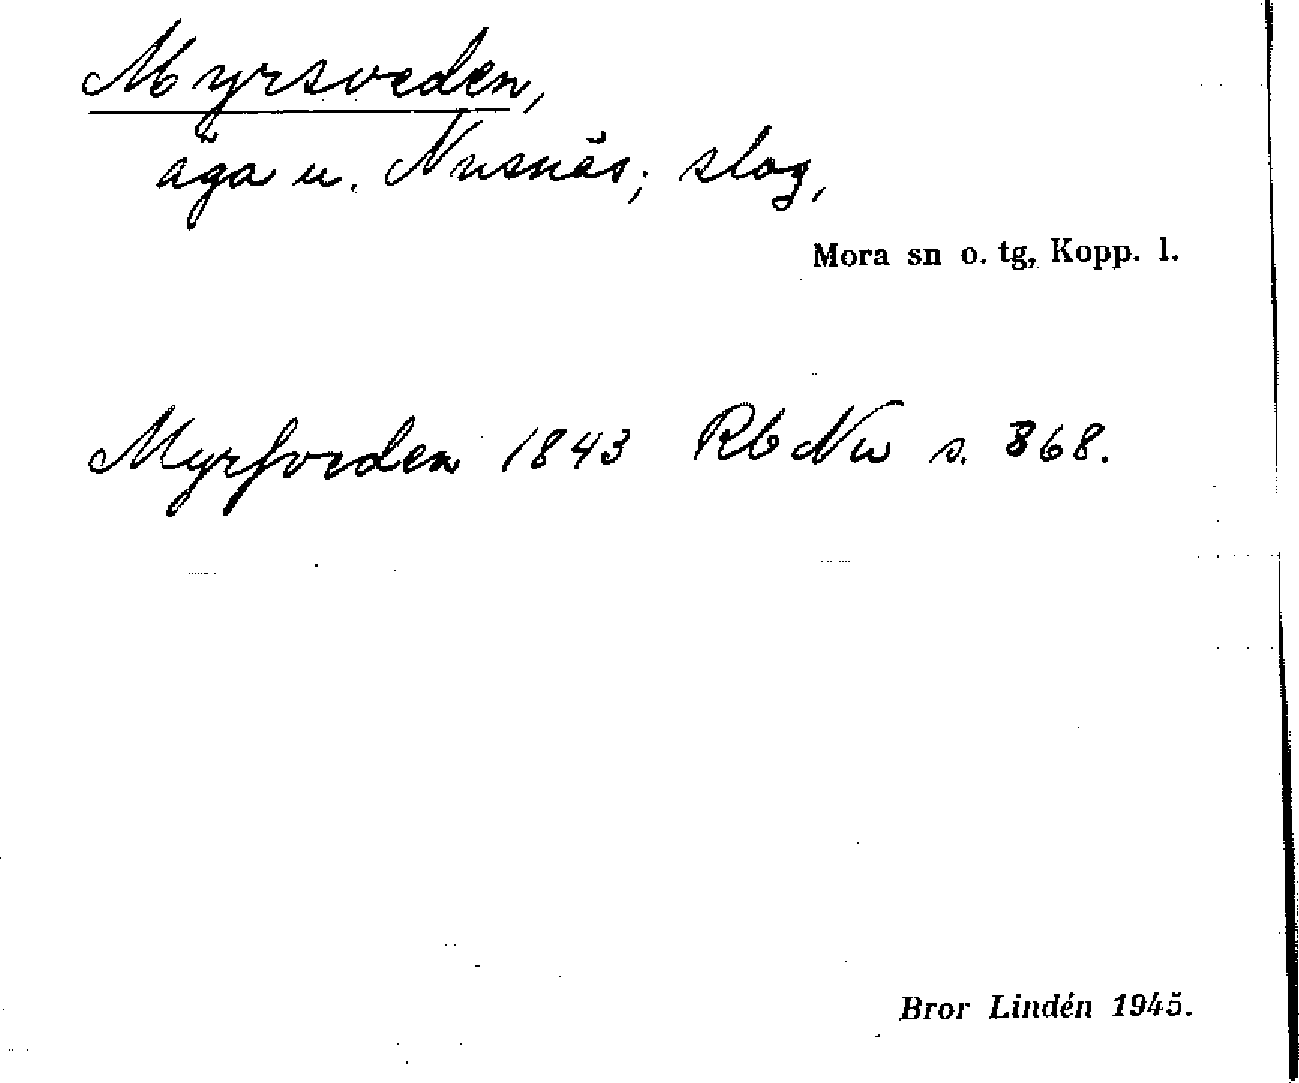 Myrsveden,
äga u. Nusnäs; slog,
Mora sn o. tg, Kopp. l.
Myrsveden 1843 Rb Nw s. 368.
Bror Lindén 1945.